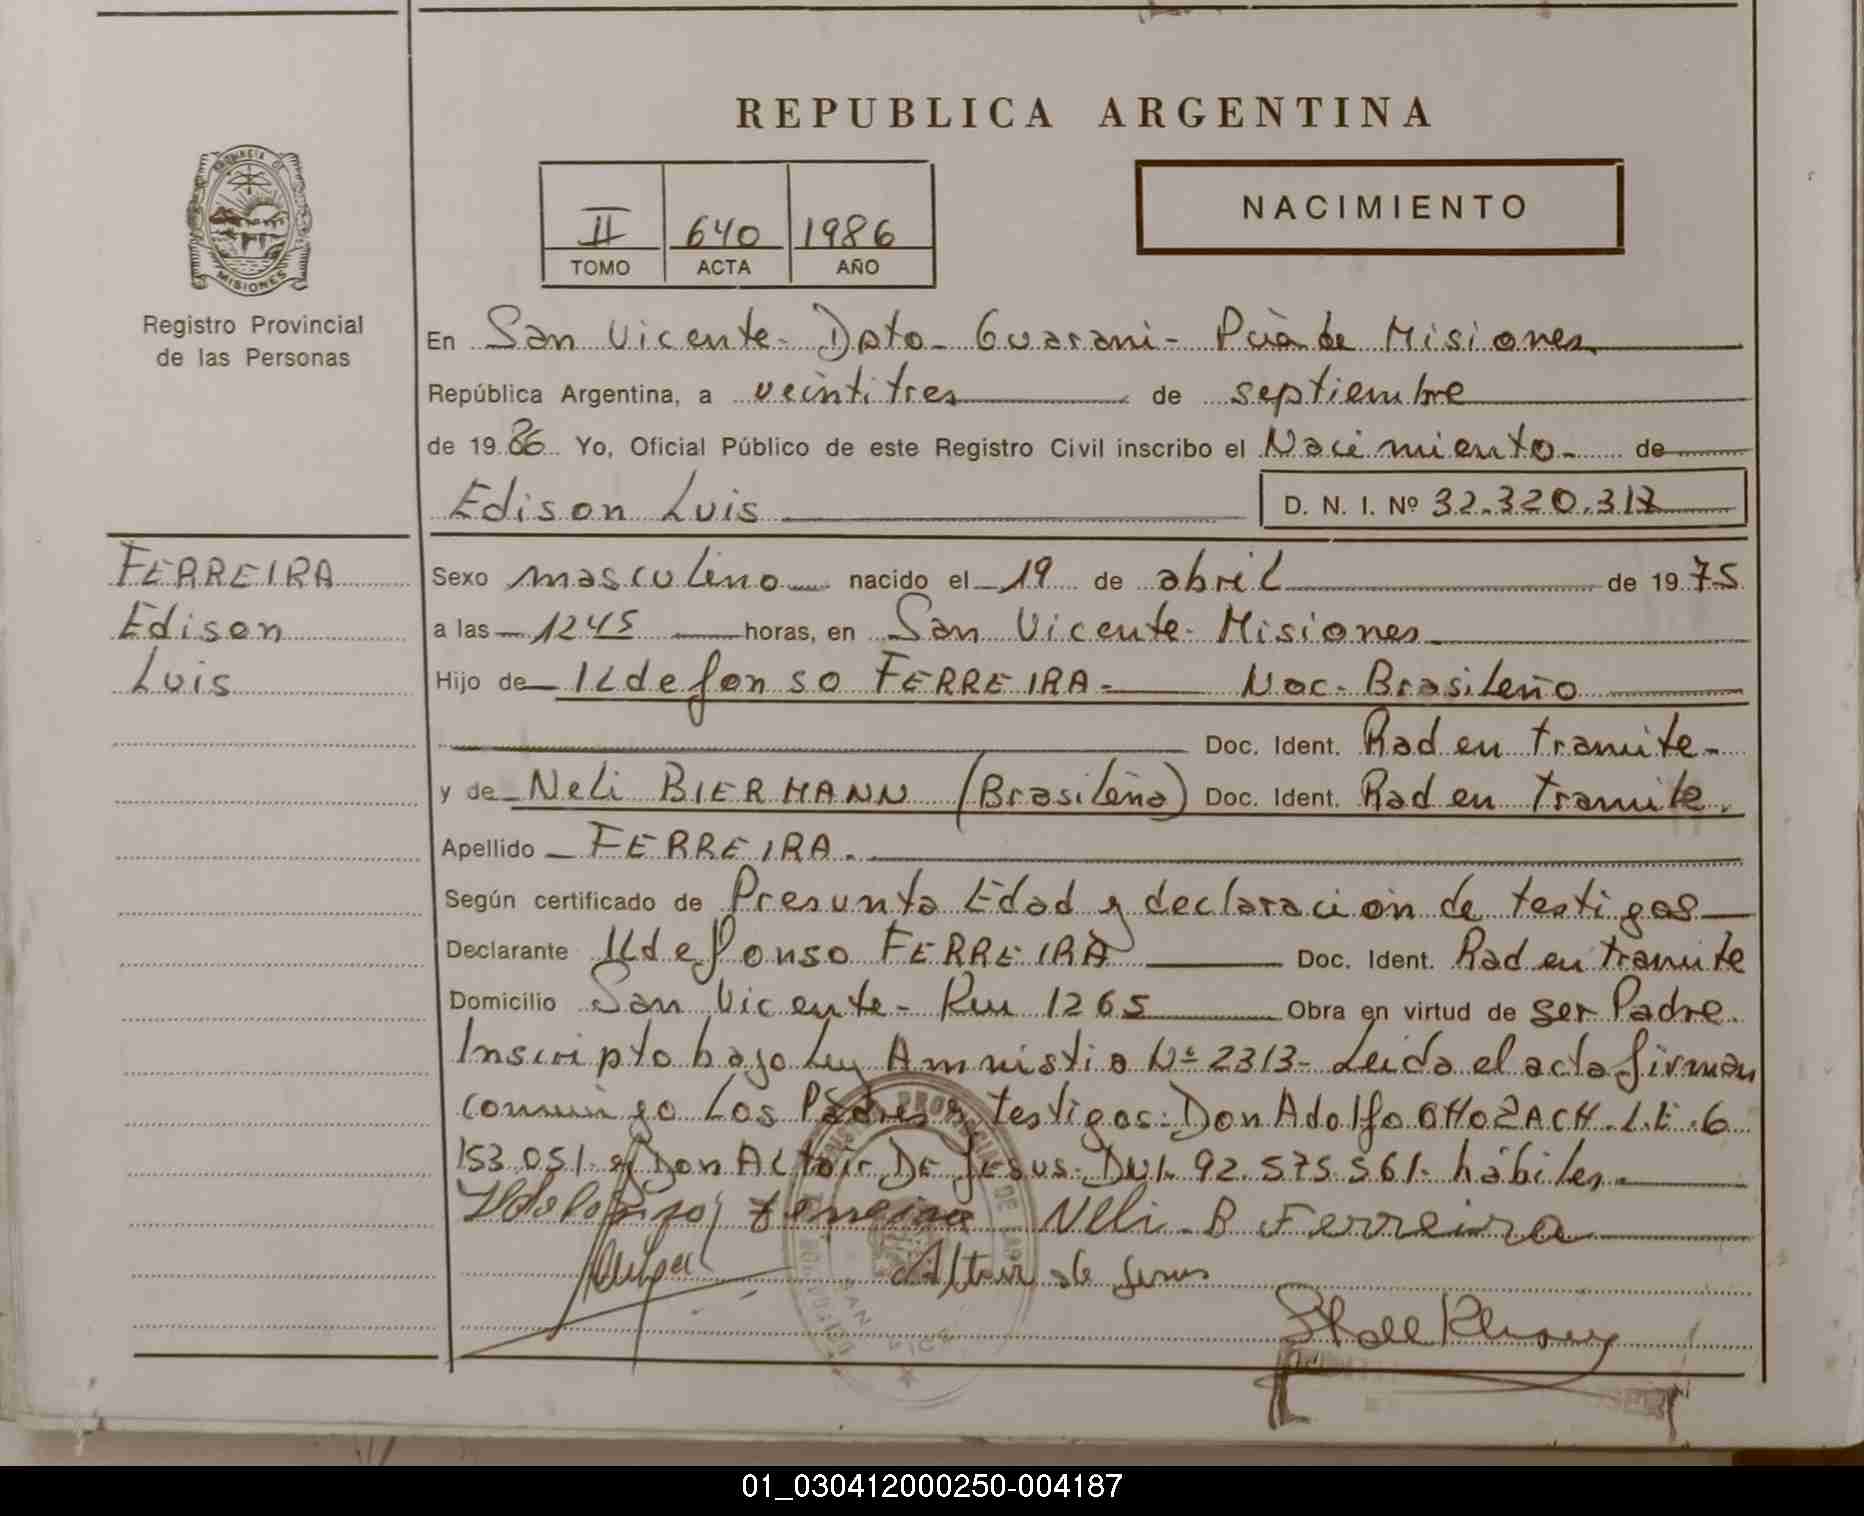 REPUBLICA ARGENTINA
PROVINCIA DE
MISIONES
II 640 1986
TOMO ACTA AÑO
NACIMIENTO
Registro Provincial
de las Personas
En San Vicente- Dpto- Guarani- Pcia de Misiones
República Argentina, a veintitres de septiembre
de 19 86 Yo, Oficial Público de este Registro Civil inscribo el Nacimiento- de
Edison Luis D. N. I. Nº 32.320.317
FERREIRA
Edison
Luis
Sexo masculino nacido el 19 de abril de 19 75
a las 1245 horas, en San Vicente- Misiones
Hijo de ILdefonso FERREIRA- Nac- Brasileño
Doc. Ident. Rad en tramite-
y de Neli BIERMANN (Brasileña) Doc. Ident. Rad en tramite.
Apellido FERREIRA.
Según certificado de Presunta Edad y declaracion de testigos
Declarante ILdefonso FERREIRA Doc. Ident. Rad en tramite
Domicilio San Vicente- Km 1265 Obra en virtud de ser Padre.
Inscripto bajo Ley Amnistia Nº 2313- Leida el acta firman
conmigo Los Padres y testigos: Don Adolfo L.E. 6
153.051- y Don ALtair DE JESUS- DNI. 92.575.561- hábiles.
Ildefonso Ferreira Neli B Ferreira
Altair de Jesus
01_030412000250-004187